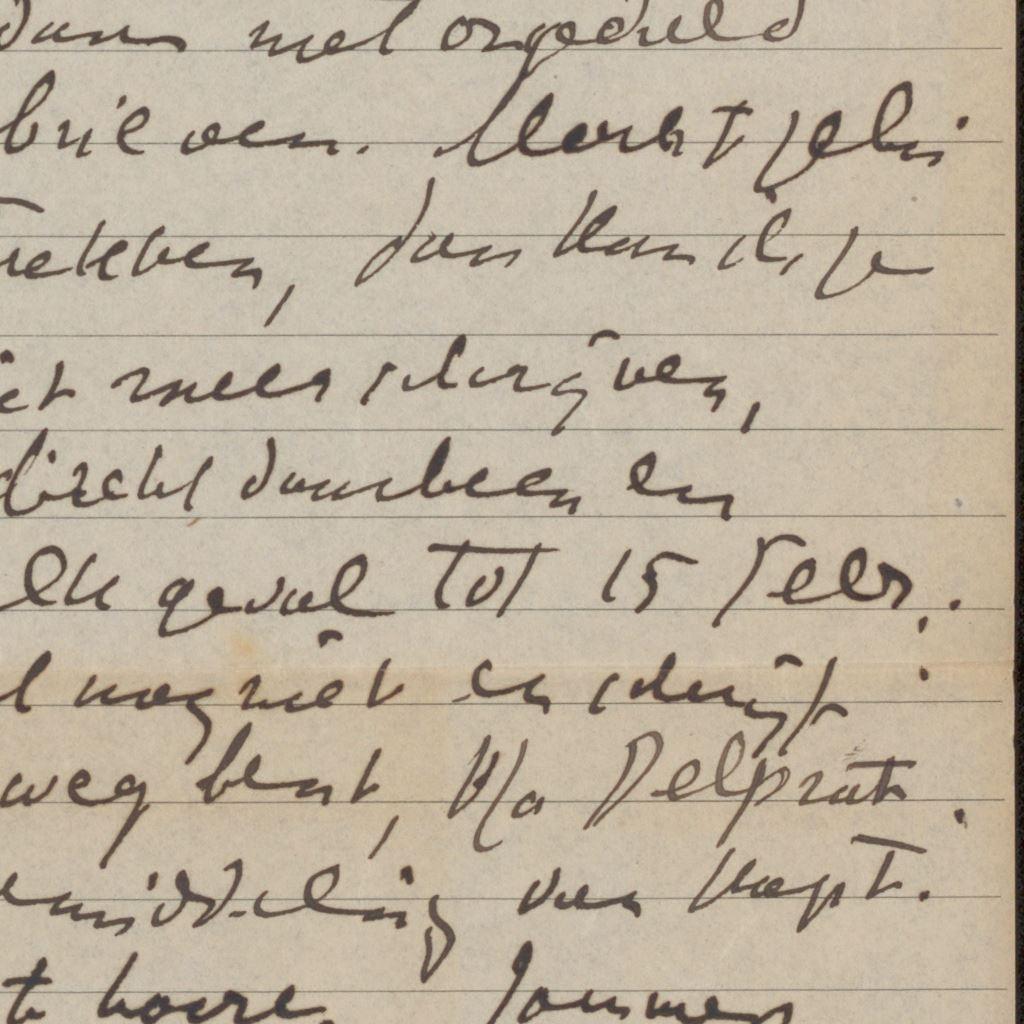 dan met ongeduld
brieven. Mocht je bij
trekken, dan kan ik je
iet meer schrijven,
direct doorheen en
elk geval tot 15 Febr.
l nog niet en schrijf
weg bent, K/a Delprat.
emiddeling van Kapt.
te hooren. Jammer